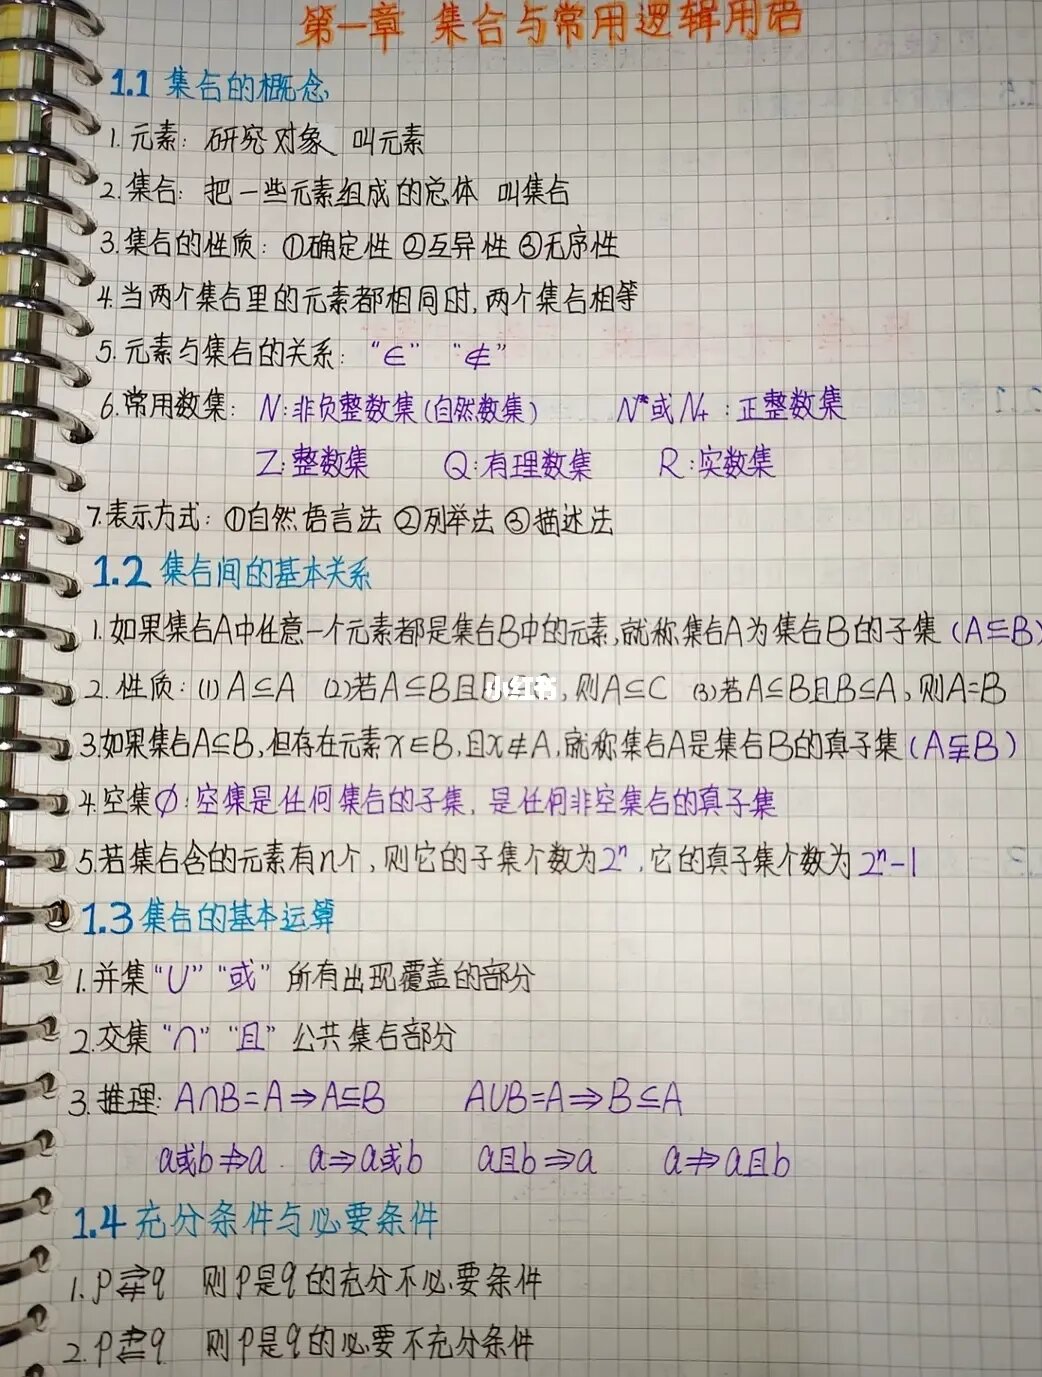 第一章 集合与常用逻辑用语
1.1 集合的概念
1. 元素: 研究对象 叫元素
2. 集合: 把一些元素组成的总体 叫集合
3. 集合的性质: ①确定性 ②互异性 ③无序性
4. 当两个集合里的元素都相同时, 两个集合相等
5. 元素与集合的关系: “∈” “∉”
6. 常用数集: N: 非负整数集(自然数集) N*或N₊: 正整数集
Z: 整数集 Q: 有理数集 R: 实数集
7. 表示方式: ①自然语言法 ②列举法 ③描述法
1.2 集合间的基本关系
1. 如果集合A中任意一个元素都是集合B中的元素, 就称集合A为集合B的子集 (A⊆B)
2. 性质: (1) A⊆A (2)若A⊆B且 小红书, 则A⊆C (3)若A⊆B且B⊆A, 则A=B
3. 如果集合A⊆B, 但存在元素x∈B, 且x∉A, 就称集合A是集合B的真子集 (A⫋B)
4. 空集∅: 空集是任何集合的子集, 是任何非空集合的真子集
5. 若集合含的元素有n个, 则它的子集个数为2ⁿ, 它的真子集个数为2ⁿ-1
1.3 集合的基本运算
1. 并集“∪” “或” 所有出现覆盖的部分
2. 交集“∩” “且” 公共集合部分
3. 推理: A∩B=A⇒A⊆B A∪B=A⇒B⊆A
a或b⇏a a⇒a或b a且b⇒a a⇏a且b
1.4 充分条件与必要条件
1. p⇒⇍q 则p是q的充分不必要条件
2. p⇏⇐q 则p是q的必要不充分条件